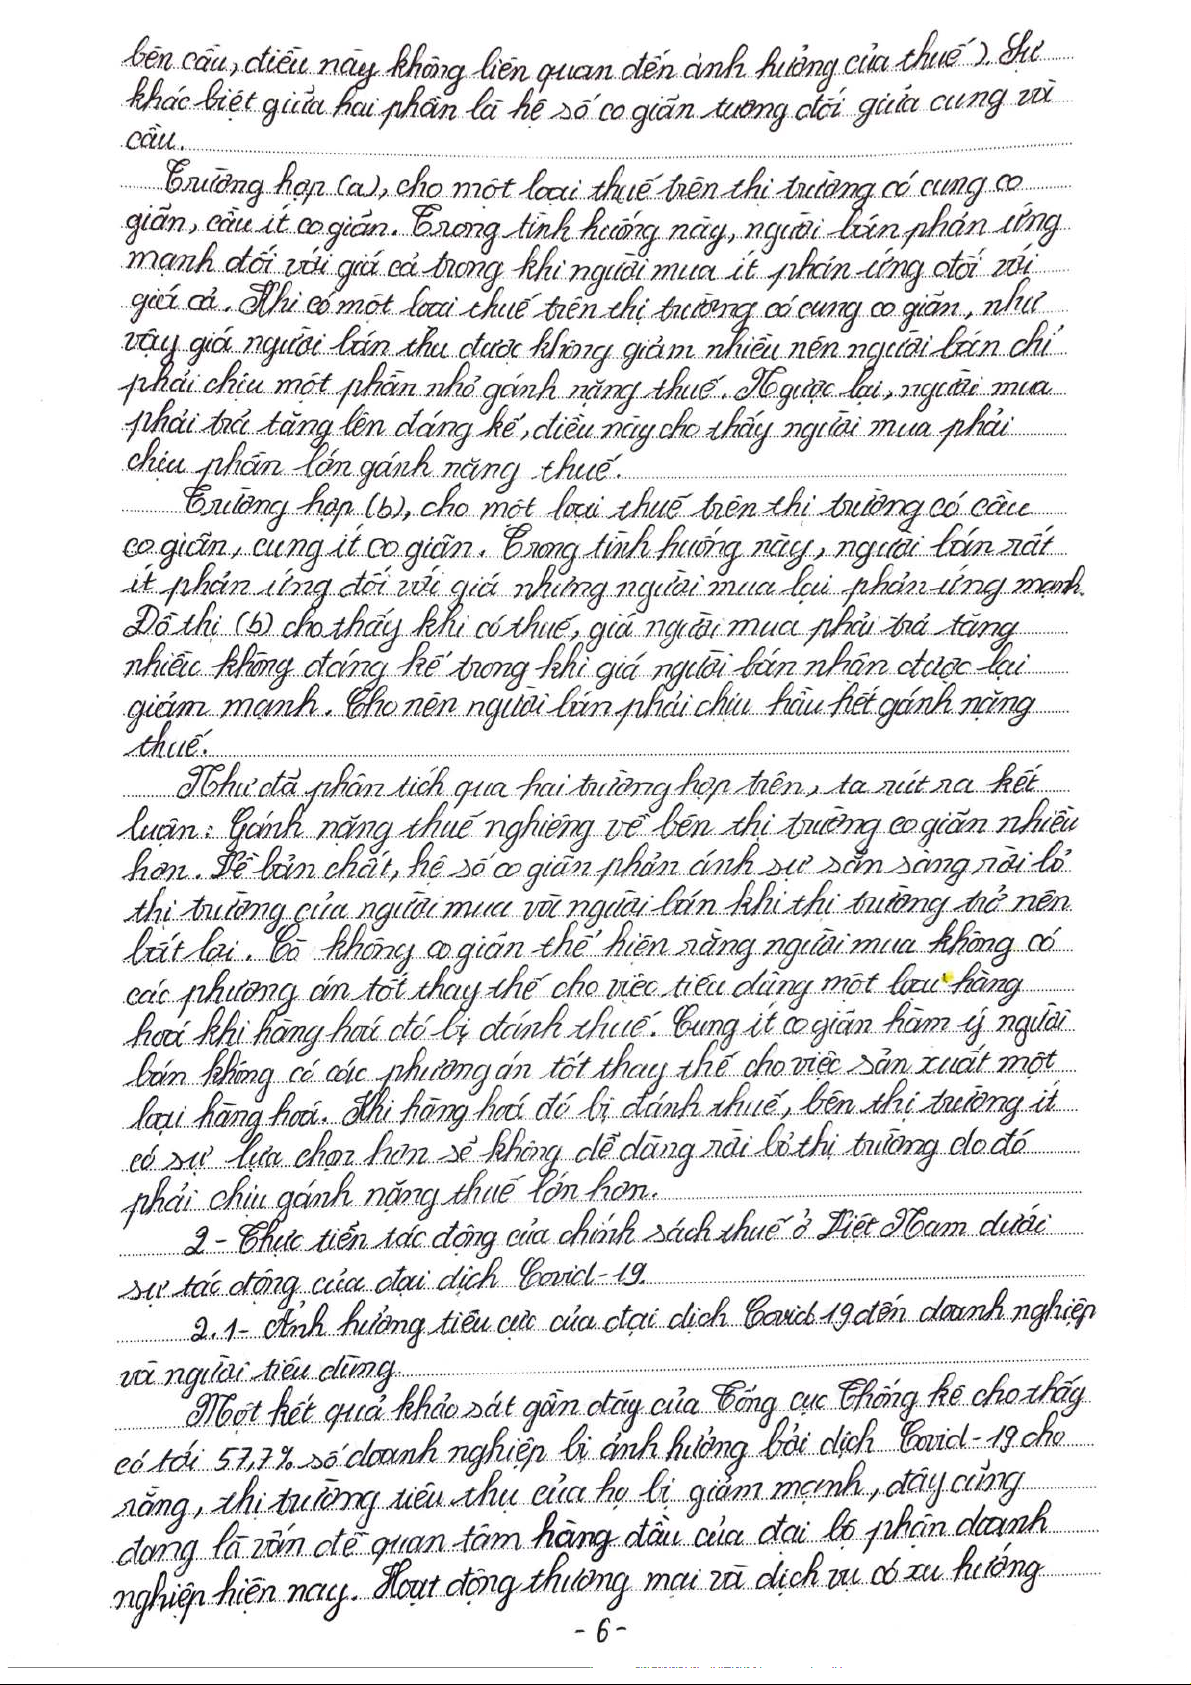 bên cầu, điều này không liên quan đến ảnh hưởng của thuế). Sự
khác biệt giữa hai phần là hệ số co giãn tương đối giữa cung và
cầu.
Trường hợp (a), cho một loại thuế trên thị trường có cung co
giãn, cầu ít co giãn. Trong tình huống này, người bán phản ứng
mạnh đối với giá cả trong khi người mua ít phản ứng đối với
giá cả. Khi có một loại thuế trên thị trường có cung co giãn, như
vậy giá người bán thu được không giảm nhiều nên người bán chỉ
phải chịu một phần nhỏ gánh nặng thuế. Ngược lại, người mua
phải trả tăng lên đáng kể, điều này cho thấy người mua phải
chịu phần lớn gánh nặng thuế.
Trường hợp (b), cho một loại thuế trên thị trường có cầu
co giãn, cung ít co giãn. Trong tình huống này, người bán rất
ít phản ứng đối với giá nhưng người mua lại phản ứng mạnh.
Đồ thị (b) cho thấy khi có thuế, giá người mua phải trả tăng
nhiều không đáng kể trong khi giá người bán nhận được lại
giảm mạnh. Cho nên người bán phải chịu hầu hết gánh nặng
thuế.
Như đã phân tích qua hai trường hợp trên, ta rút ra kết
luận: Gánh nặng thuế nghiêng về bên thị trường co giãn nhiều
hơn. Về bản chất, hệ số co giãn phản ánh sự sẵn sàng rời bỏ
thị trường của người mua và người bán khi thị trường trở nên
bất lợi. Cô không co giãn thể hiện rằng người mua không có
các phương án tốt thay thế cho việc tiêu dùng một loại hàng
hoá khi hàng hoá đó bị đánh thuế. Cung ít co giãn hàm ý người
bán không có các phương án tốt thay thế cho việc sản xuất một
loại hàng hoá. Khi hàng hoá đó bị đánh thuế, bên thị trường ít
có sự lựa chọn hơn sẽ không dễ dàng rời bỏ thị trường do đó
phải chịu gánh nặng thuế lớn hơn.
2- Thực tiễn tác động của chính sách thuế ở Việt Nam dưới
sự tác động của đại dịch Covid-19.
2.1- Ảnh hưởng tiêu cực của đại dịch Covid 19 đến doanh nghiệp
và người tiêu dùng
Một kết quả khảo sát gần đây của Tổng cục Thống kê cho thấy
có tới 57,7% số doanh nghiệp bị ảnh hưởng bởi dịch Covid-19 cho
rằng, thị trường tiêu thụ của họ bị giảm mạnh, đây cũng
đang là vấn đề quan tâm hàng đầu của đại bộ phận doanh
nghiệp hiện nay. Hoạt động thương mại và dịch vụ có xu hướng
-6-